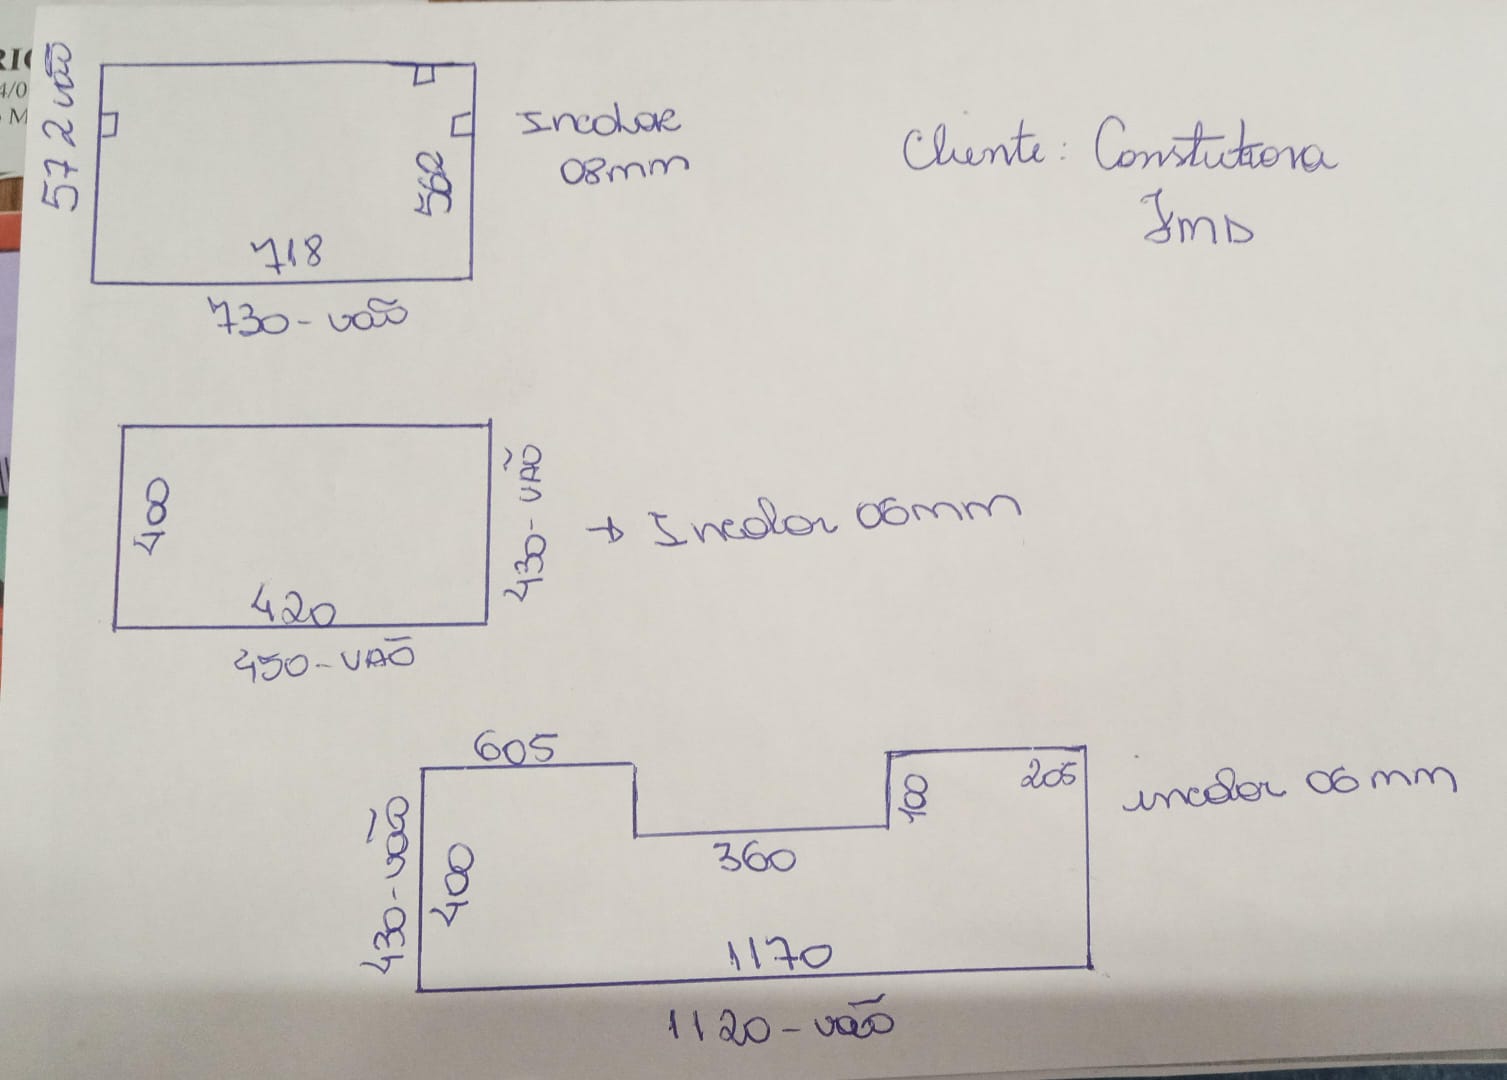 RIC
4/0
M
572 vão
562
718
730 - vão
Incolor
08mm
Cliente: Constutora
JMD
400
420
430 - VÃO
450 - VAÕ
→ Incolor 06mm
605
430 - vão
400
360
100
205
1170
1120 - vão
incolor 06 mm